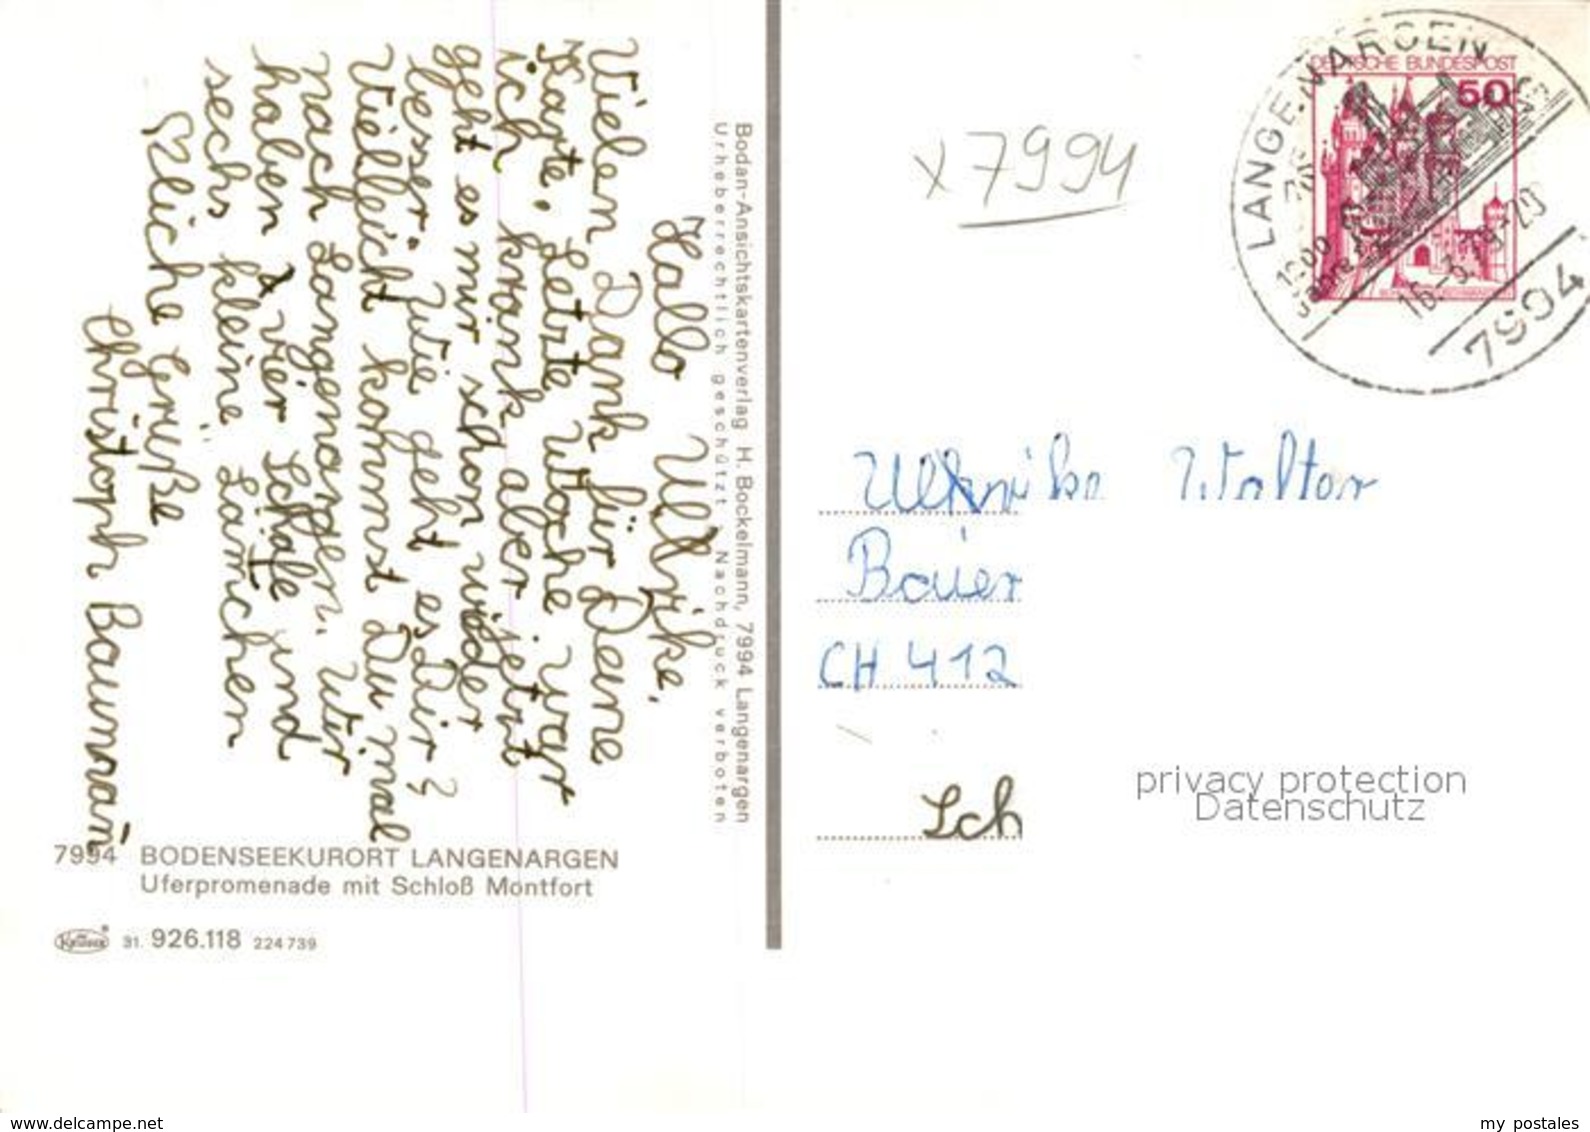 Hallo Ulrike,
Vielen Dank für Deine
Karte. Letzte Woche war
ich krank aber jetzt
geht es mir schon wieder
besser. Wie geht es Dir?
Vielleicht kommst Du mal
nach Langenargen. Wir
haben vier Schafe und
sechs kleine Lämchen
♡liche Grüße
Christoph Baumann
Bodan-Ansichtskartenverlag H. Bockelmann, 7994 Langenargen
Urheberrechtlich geschützt · Nachdruck verboten
7994 BODENSEEKURORT LANGENARGEN
Uferpromenade mit Schloß Montfort
Krüger 31. 926.118 224 739
x 7994
LANGENARGEN
DEUTSCHE BUNDESPOST
50
1200
Jahre
16.-3.79-20
7994
Ulrike Walter
Bauer
CH 412
Sch
privacy protection
Datenschutz
www.delcampe.net
my postales